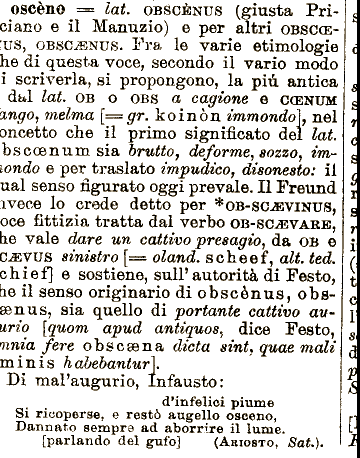 oscèno = lat. OBSCÈNUS (giusta Pri-
ciano e il Manuzio) e per altri OBSCŒ-
NUS, OBSCÆNUS. Fra le varie etimologie
che di questa voce, secondo il vario modo
di scriverla, si propongono, la più antica
dal lat. OB o OBS a cagione e CŒNUM
fango, melma [= gr. koinòn immondo], nel
concetto che il primo significato del lat.
obscœnum sia brutto, deforme, sozzo, im-
mondo e per traslato impudico, disonesto: il
qual senso figurato oggi prevale. Il Freund
invece lo crede detto per *OB-SCÆVINUS,
voce fittizia tratta dal verbo OB-SCÆVARE,
che vale dare un cattivo presagio, da OB e
SCÆVUS sinistro [= oland. scheef, alt. ted.
schief] e sostiene, sull'autorità di Festo,
che il senso originario di obscènus, obs-
cænus, sia quello di portante cattivo au-
gurio [quom apud antiquos, dice Festo,
omnia fere obscæna dicta sint, quae mali
ominis habebantur].
Di mal'augurio, Infausto:
d'infelici piume
Si ricoperse, e restò augello osceno,
Dannato sempre ad aborrire il lume.
[parlando del gufo] (ARIOSTO, Sat.).